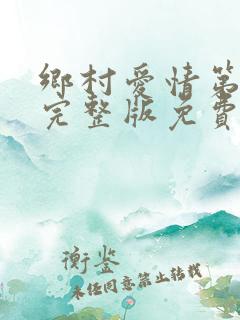 鄉村愛情第
完整版免費
衡鉴
未经同意禁止转载